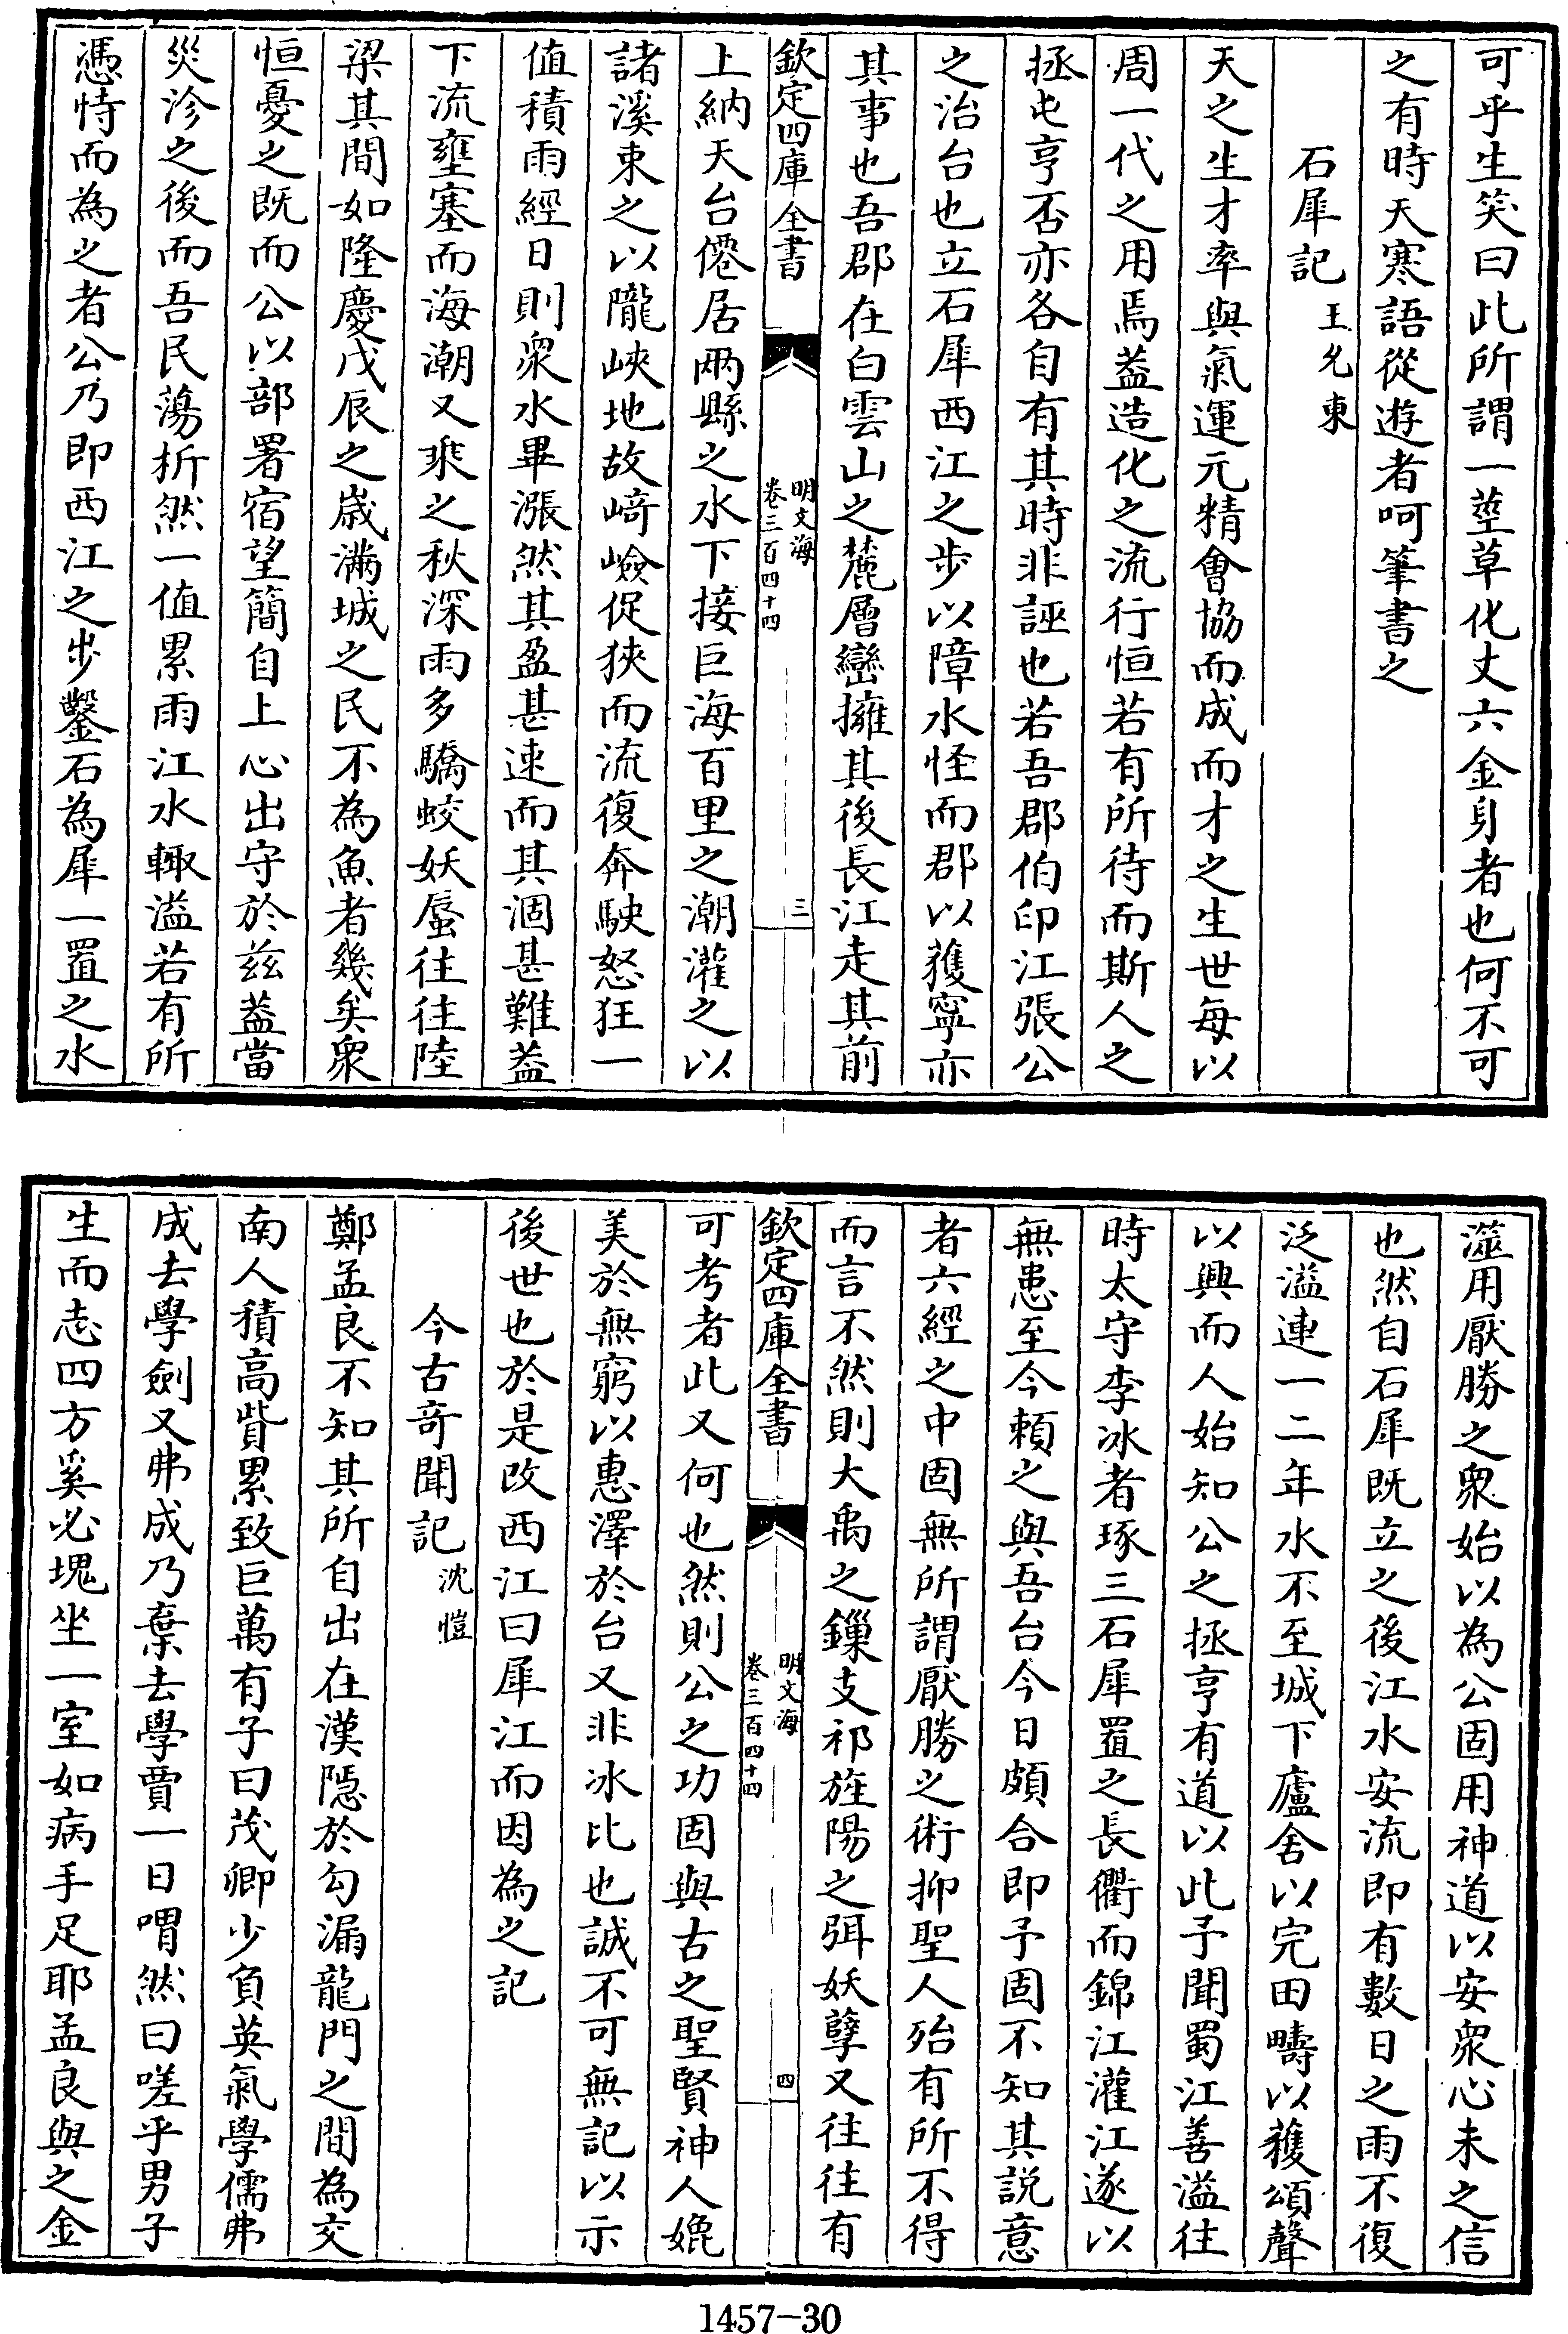 可乎生笑曰此所謂一莖草化丈六金身者也何不可
之有時天寒語從遊者呵筆書之
石犀記王允東
天之生才率與氣運元精會協而成而才之生世每以
周一代之用焉葢造化之流行恒若有所待而斯人之
拯屯亨否亦各自有其時非誣也若吾郡伯印江張公
之治台也立石犀西江之步以障水怪而郡以獲寧亦
其事也吾郡在白雲山之麓層巒擁其後長江走其前
欽定四庫全書
明文海
卷三百四十四
三
上納天台僊居兩縣之水下接巨海百里之潮灌之以
諸溪束之以隴峽地故﨑嶮促狹而流復奔駛怒狂一
值積雨經日則衆水畢漲然其盈甚速而其涸甚難葢
下流壅塞而海潮又乘之秋深雨多驕蛟妖蜃往往陸
梁其間如隆慶戊辰之歲滿城之民不為魚者幾矣衆
恒憂之既而公以部署宿望簡自上心出守於兹葢當
災沴之後而吾民蕩析然一值累雨江水輙溢若有所
憑恃而為之者公乃即西江之步鑿石為犀一置之水
澨用厭勝之衆始以為公固用神道以安衆心未之信
也然自石犀既立之後江水安流即有數日之雨不復
泛溢連一二年水不至城下廬舍以完田疇以穫頌聲
以興而人始知公之拯亨有道以此予聞蜀江善溢往
時太守李冰者琢三石犀置之長衢而錦江灌江遂以
無患至今賴之與吾台今日頗合即予固不知其説意
者六經之中固無所謂厭勝之術抑聖人殆有所不得
而言不然則大禹之鏁支祁旌陽之弭妖孽又往往有
欽定四庫全書
明文海
卷三百四十四
四
可考者此又何也然則公之功固與古之聖賢神人媲
美於無窮以惠澤於台又非冰比也誠不可無記以示
後世也於是改西江曰犀江而因為之記
今古奇聞記沈愷
鄭孟良不知其所自出在漢隱於勾漏龍門之間為交
南人積高貲累致巨萬有子曰茂卿少負英氣學儒弗
成去學劍又弗成乃棄去學賈一日喟然曰嗟乎男子
生而志四方奚必塊坐一室如病手足耶孟良與之金
1457-30